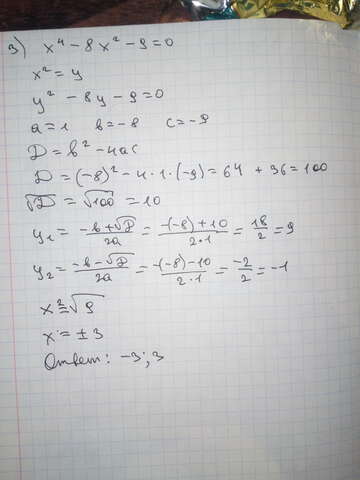 3) x⁴ - 8x² - 9 = 0
x² = y
y² - 8y - 9 = 0
a = 1 b = -8 c = -9
D = b² - 4ac
D = (-8)² - 4 · 1 · (-9) = 64 + 36 = 100
√D = √100 = 10
y₁ = (-b + √D)/2a = (-(-8) + 10)/(2·1) = 18/2 = 9
y₂ = (-b - √D)/2a = (-(-8) - 10)/(2·1) = -2/2 = -1
x² = √9
x = ± 3
Ответ: -3; 3